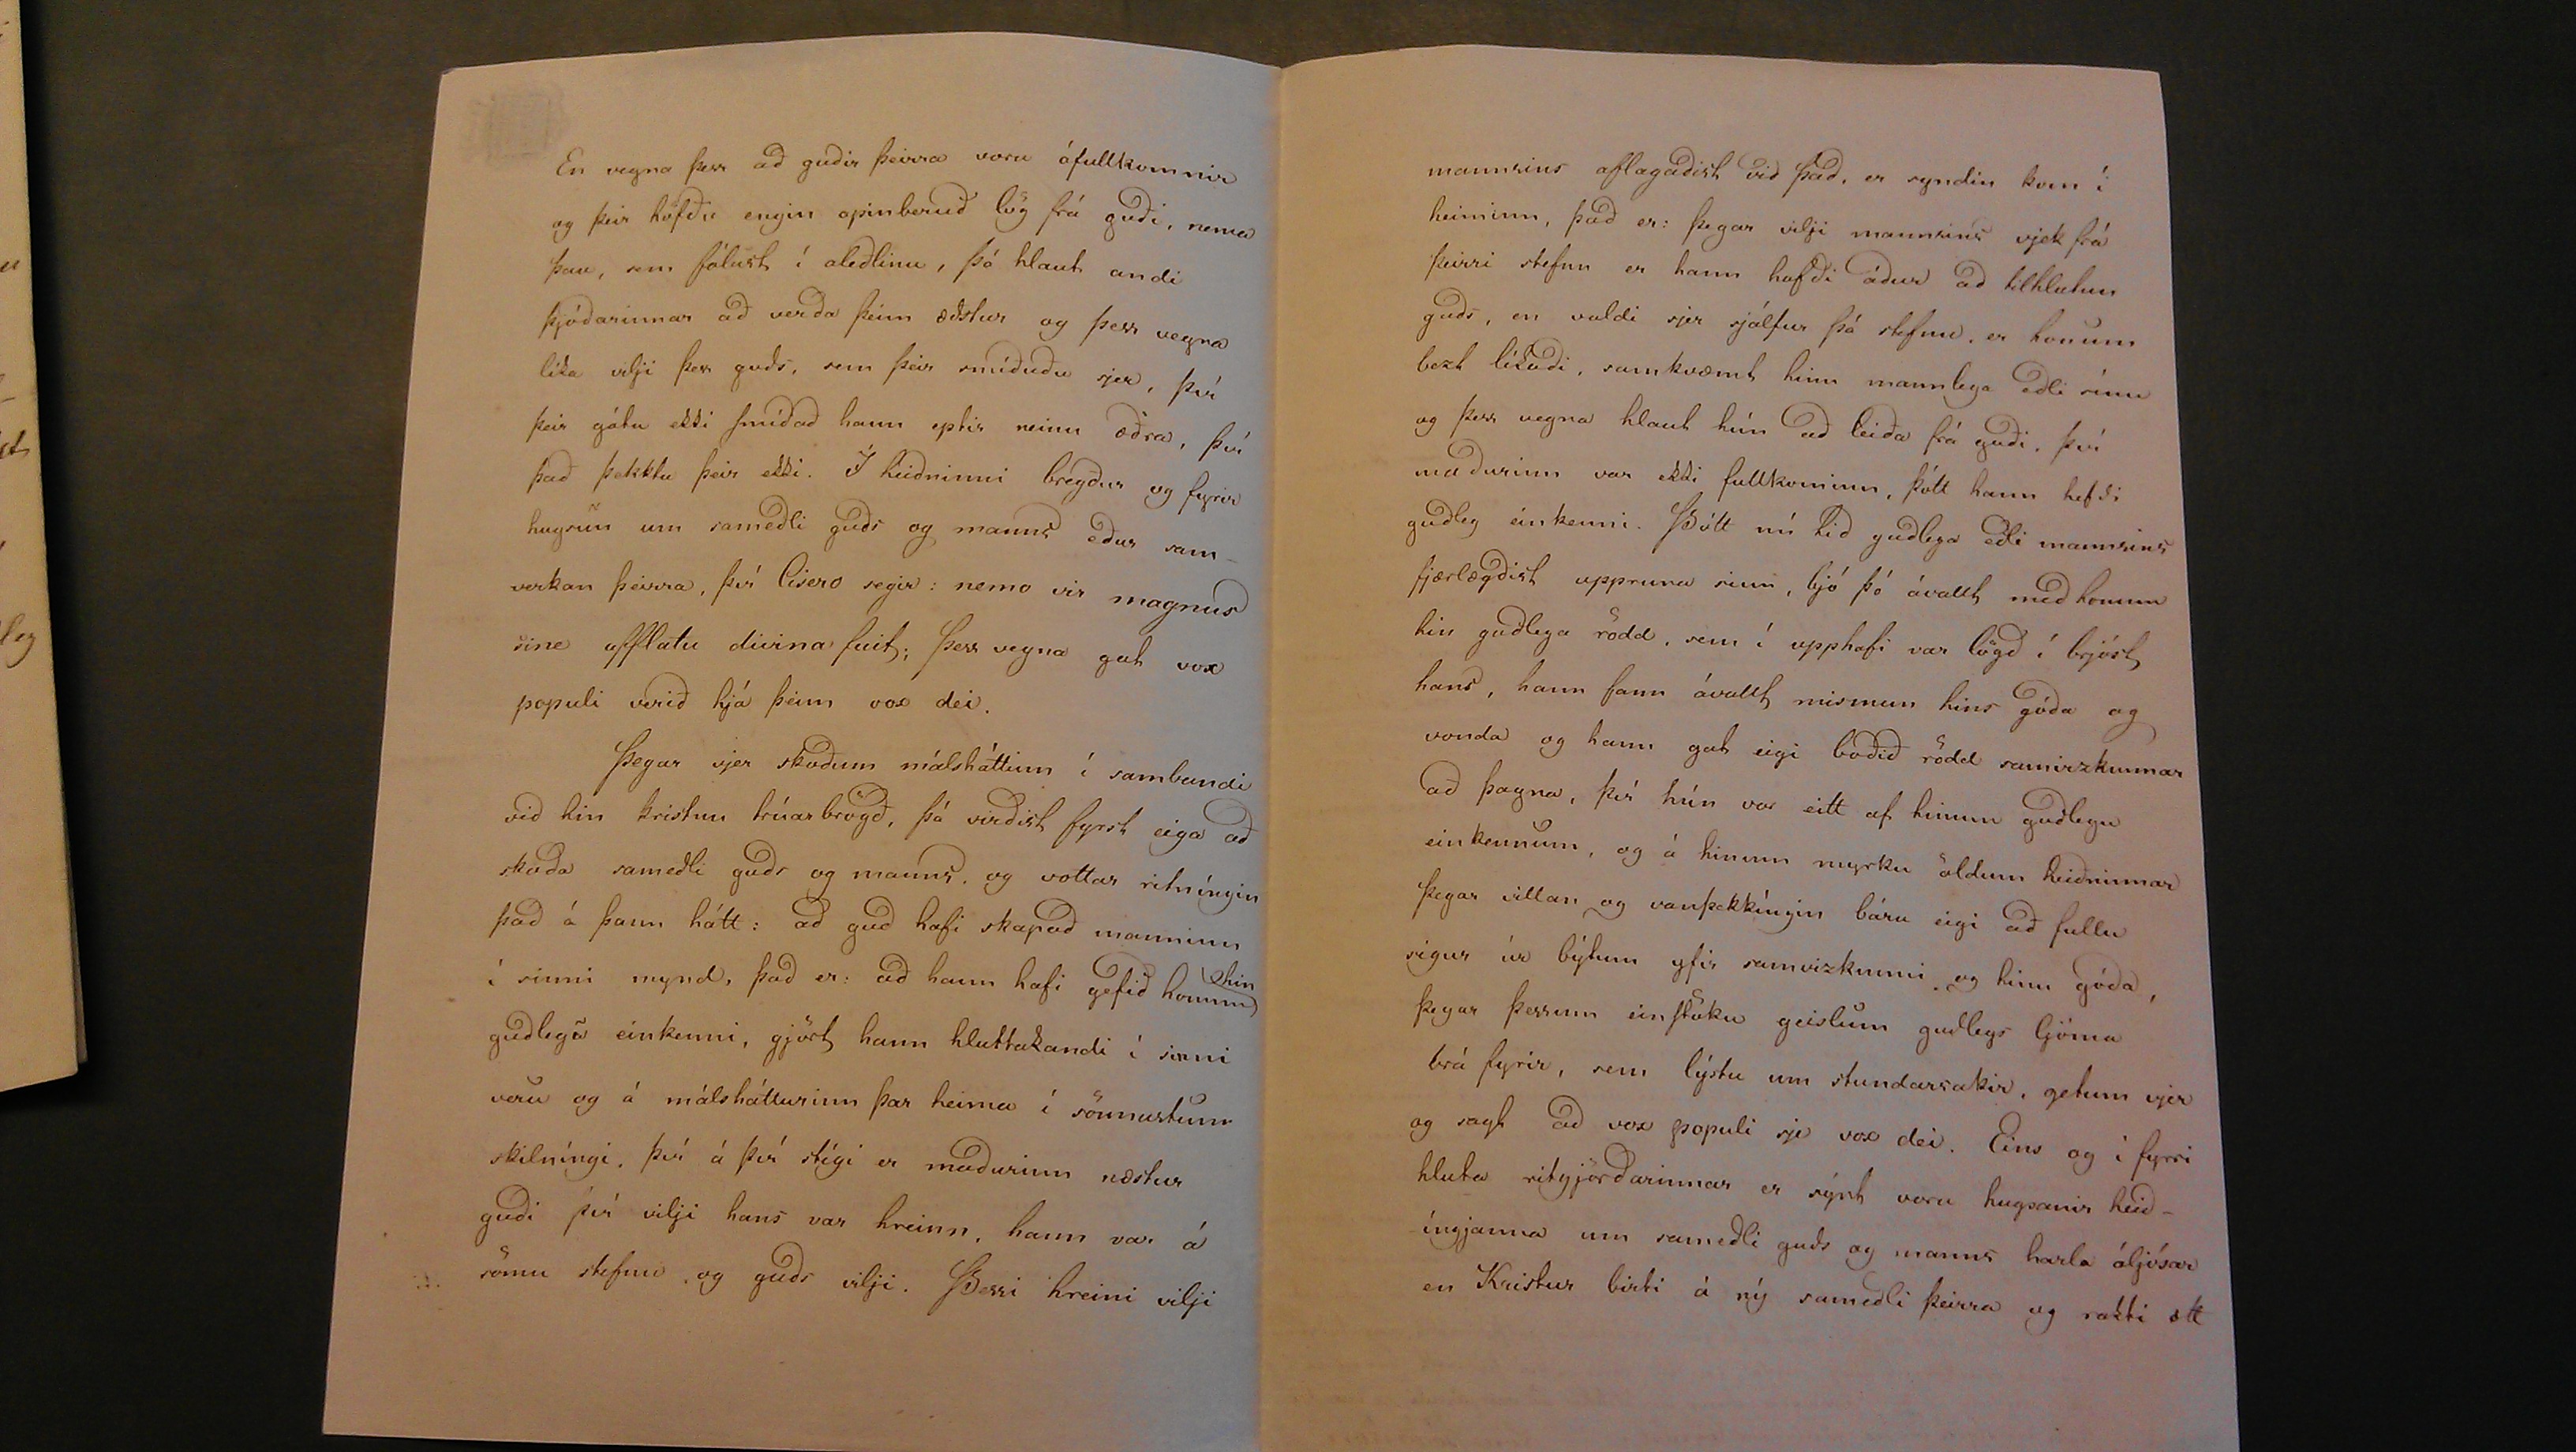 En vegna þess að guðir þeirra voru ófullkomnir
og þeir höfðu engin opinberuð lög frá guði, nema
þau, sem fólust í aleðlinu, þá hlaut andi
þjóðarinnar að verða þeim æðstur og þess vegna
líka vilji þess guðs, sem þeir smíðuðu sjer, því
þeir gátu ekki smíðað hann eptir neinu æðra, því
það þekktu þeir ekki. Í heiðninni bregður og fyrir
hugsun um sameðli guðs og manns eður sam-
verkan þeirra, því Cisero segir: nemo vir magnus
sine afflatu divina fuit; þess vegna gat vox
populi verið hjá þeim vox dei.
Þegar vjer skoðum málsháttinn í sambandi
við hin kristnu trúarbrögð, þá virðist fyrst eiga að
skoða sameðli guðs og manns, og vottar ritníngin
það á þann hátt: að guð hafi skapað manninn
í sinni mynd, það er: að hann hafi gefið honum hin
guðlegu einkenni, gjört hann hluttakandi í sinni
veru og á málshátturinn þar heima í sönnustum
skilníngi, því á því stígi er maðurinn næstur
guði því vilji hans var hreinn, hann var á
sömu stefnu og guðs vilji. Þessi hreini vilji
mannsins aflagaðist við það, er syndin kom í
heiminn, það er: þegar vilji mannsins vjek frá
þeirri stefnu er hann hafði áður að tilhlutun
guðs, en valdi sjer sjálfur þá stefnu, er honum
bezt líkaði, samkvæmt hinu mannlega eðli sínu
og þess vegna hlaut hún að leiða frá guði, því
maðurinn var ekki fullkominn, þótt hann hefði
guðleg einkenni. Þótt nú hið guðlega eðli mannsins
fjærlægðist uppruna sinn, bjó þó ávallt með honum
hin guðlega rödd, sem í upphafi var lögð í brjóst
hans, hann fann ávallt mismun hins góða og
vonda og hann gat eigi boðið rödd samvizkunnar
að þagna, því hún var eitt af hinum guðlegu
einkennum, og á hinum myrku öldum heiðninnar
þegar villan og vanþekkíngin báru eigi að fullu
sigur úr býtum yfir samvizkunni og hinu góða,
þegar þessum einstöku geislum guðlegs ljóma
brá fyrir, sem lýstu um stundarsakir, getum vjer
og sagt að vox populi sje vox dei. Eins og í fyrri
hluta ritgjörðarinnar er sýnt voru hugsanir heið-
íngjanna um sameðli guðs og manns harla óljósar
en Kristur birti á ný sameðli þeirra og rakti ætt